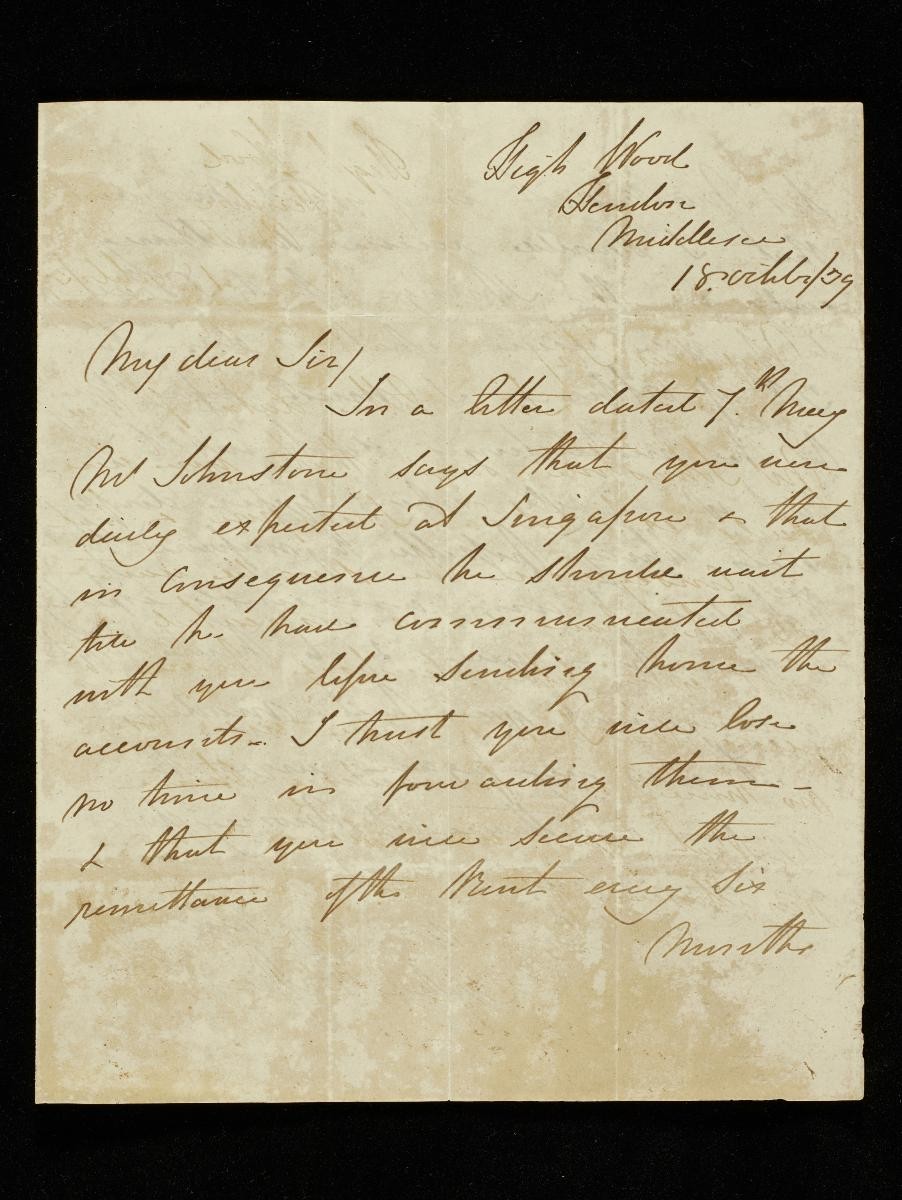 High Wood
Hendon
Middlesex
18. Octbr/39
My dear Sir/
In a letter dated 7.th May
Mr Johnstone says that you were
daily expected at Singapore & that
in consequence he should wait
till he had communicated
with you before sending home the
accounts - I trust you will lose
no time in forwarding them -
& that you will secure the
remittance of the Rent every Six
Months